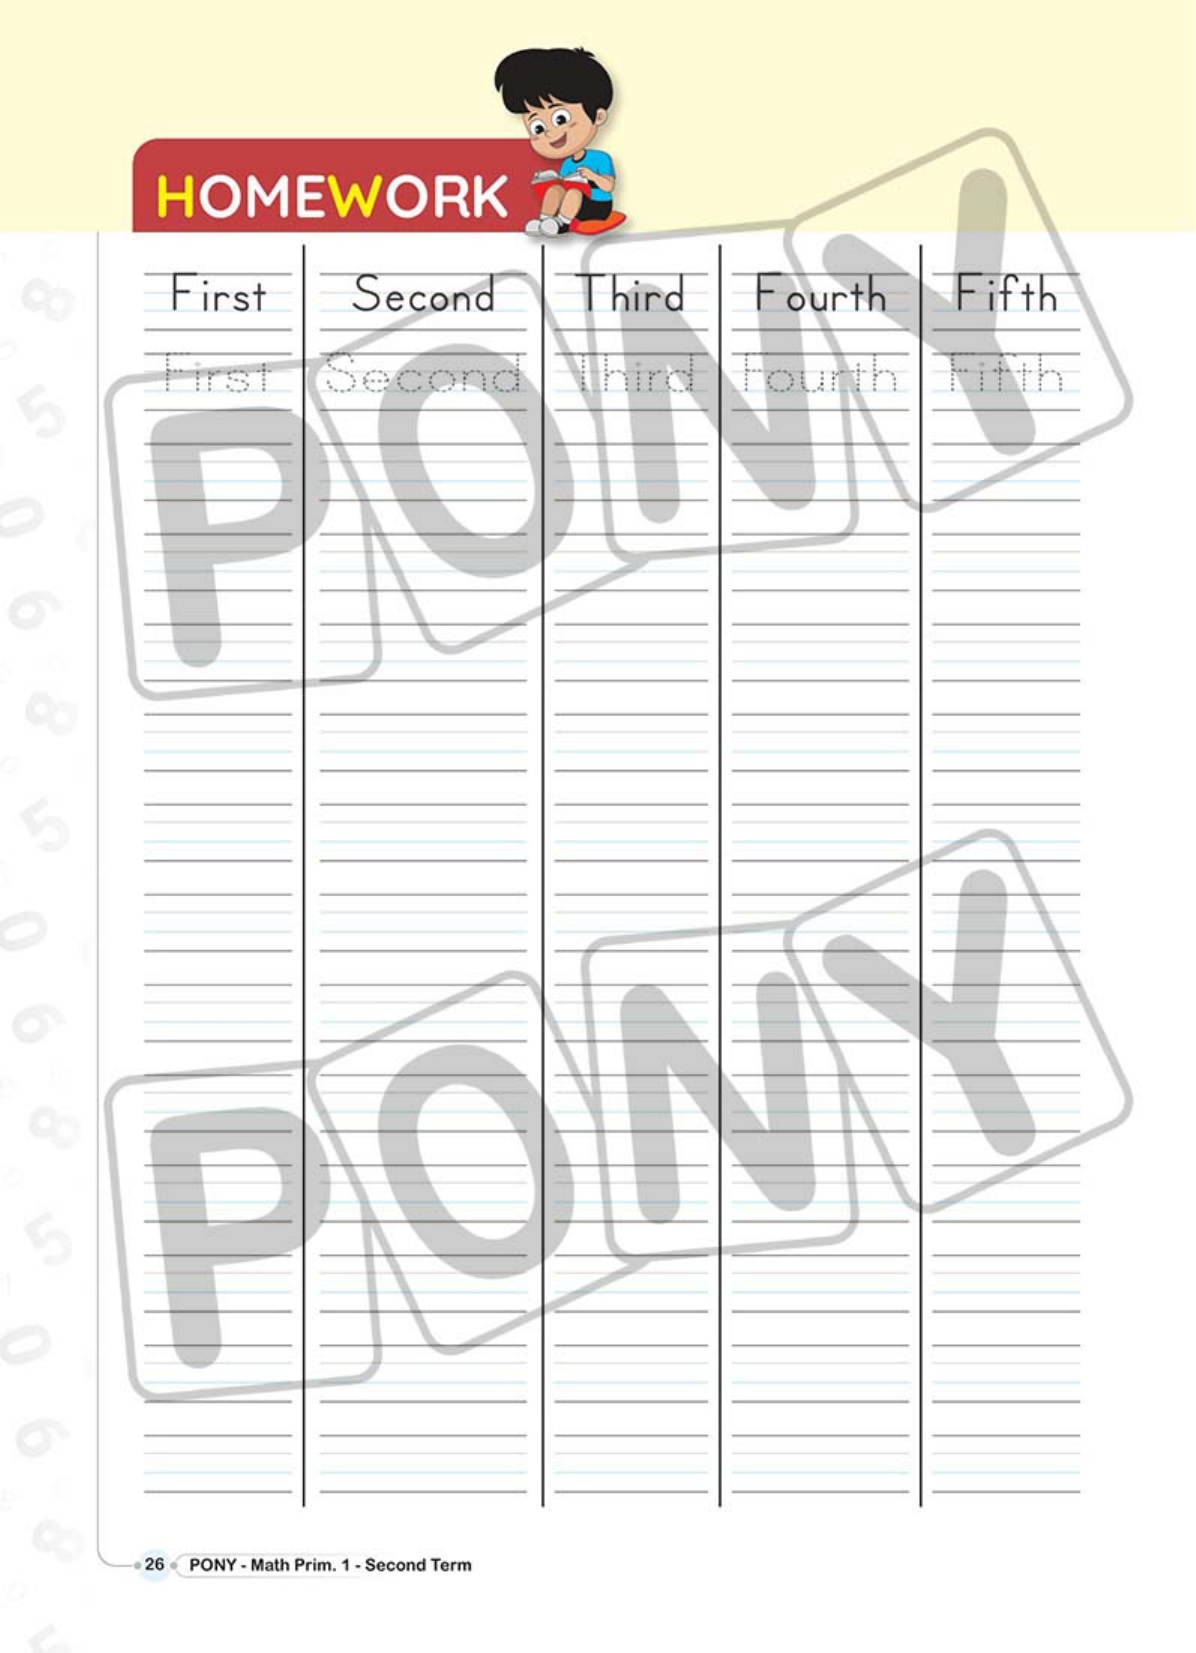 HOMEWORK
First Second Third Fourth Fifth
First Second Third Fourth Fifth
PONY
PONY
26 PONY - Math Prim. 1 - Second Term